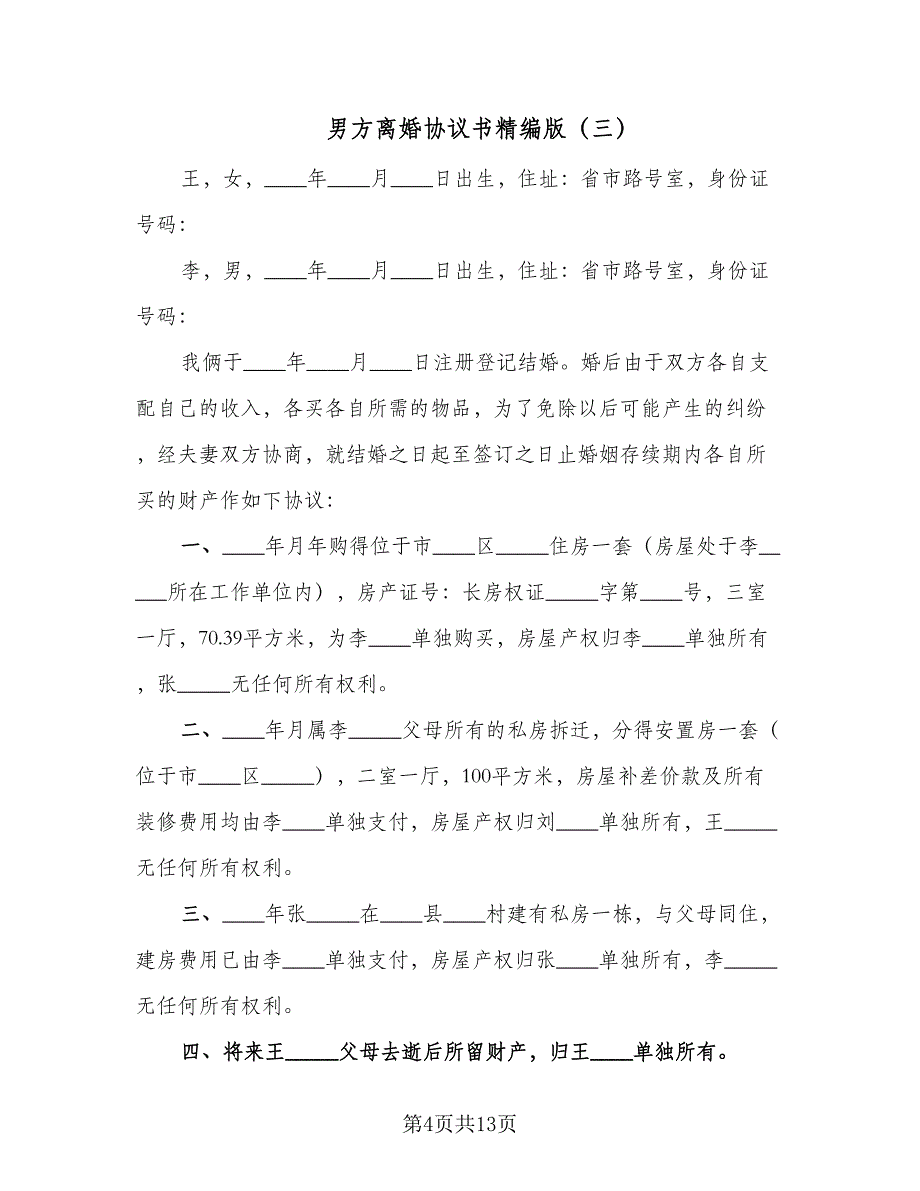 男方离婚协议书精编版（三）
王，女，____年____月____日出生，住址：省市路号室，身份证
号码：
李，男，____年____月____日出生，住址：省市路号室，身份证
号码：
我俩于____年____月____日注册登记结婚。婚后由于双方各自支
配自己的收入，各买各自所需的物品，为了免除以后可能产生的纠纷
，经夫妻双方协商，就结婚之日起至签订之日止婚姻存续期内各自所
买的财产作如下协议：
一、____年月年购得位于市____区_____住房一套（房屋处于李__
___所在工作单位内），房产证号：长房权证_____字第____号，三室
一厅，70.39平方米，为李____单独购买，房屋产权归李____单独所有
，张_____无任何所有权利。
二、____年月属李_____父母所有的私房拆迁，分得安置房一套（
位于市____区_____），二室一厅，100平方米，房屋补差价款及所有
装修费用均由李____单独支付，房屋产权归刘____单独所有，王_____
无任何所有权利。
三、____年张_____在____县____村建有私房一栋，与父母同住，
建房费用已由李____单独支付，房屋产权归张____单独所有，李_____
无任何所有权利。
四、将来王_____父母去逝后所留财产，归王____单独所有。
第4页共13页